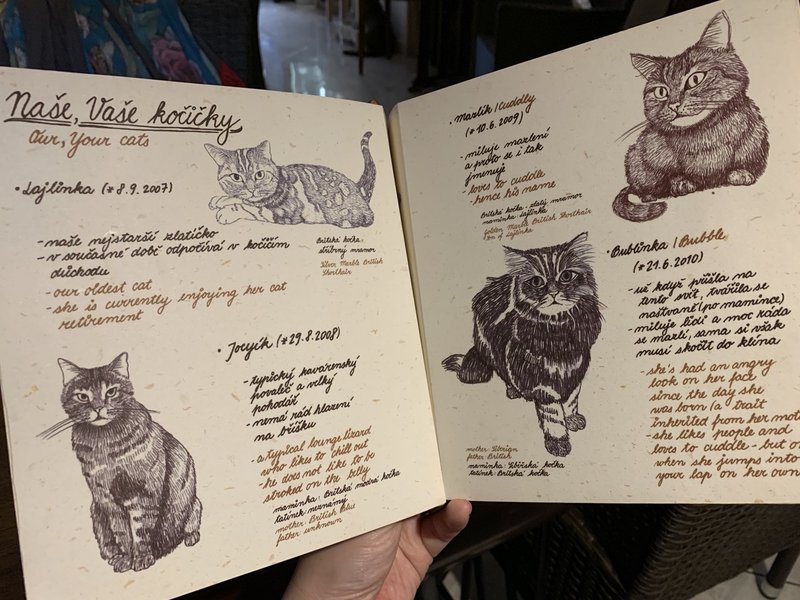 Naše, Vaše kočičky
Our, Your cats
• Lajlinka (*8.9.2007)
- naše nejstarší zlatíčko
- v současné době odpočívá v kočičím
důchodu
- our oldest cat
- she is currently enjoying her cat
retirement
Britská kočka
stříbrný mramor
Silver Marble British
Shorthair
• Joeyík (*29.8.2008)
- typický kavárenský
povaleč a velký
pohodář
- nemá rád hlazení
na bříšku
- a typical lounge lizard
who likes to chill out
- he does not like to be
stroked on the belly
maminka: Britská modrá kočka
tatínek neznámý
mother: British Blue
father unknown
• Mazlík / Cuddly
(*10.6.2009)
- miluje mazlení
a proto se i tak
jmenuje
- loves to cuddle
- hence his name
Britská kočka - zlatý mramor
maminka Lajlinka
Golden Marble British Shorthair
son of Lajlinka
• Bublinka / Bubble
(*21.6.2010)
- už když přišla na
tento svět, tvářila se
naštvaně (po mamince)
- miluje lidi a moc ráda
se mazlí, sama si však
musí skočit do klína
- she's had an angry
look on her face
since the day she
was born (a trait
inherited from her
- she likes people and
loves to cuddle - but
when she jumps into
your lap on her own
mother: Siberian
father: British
maminka: Sibiřská kočka
tatínek: Britská kočka